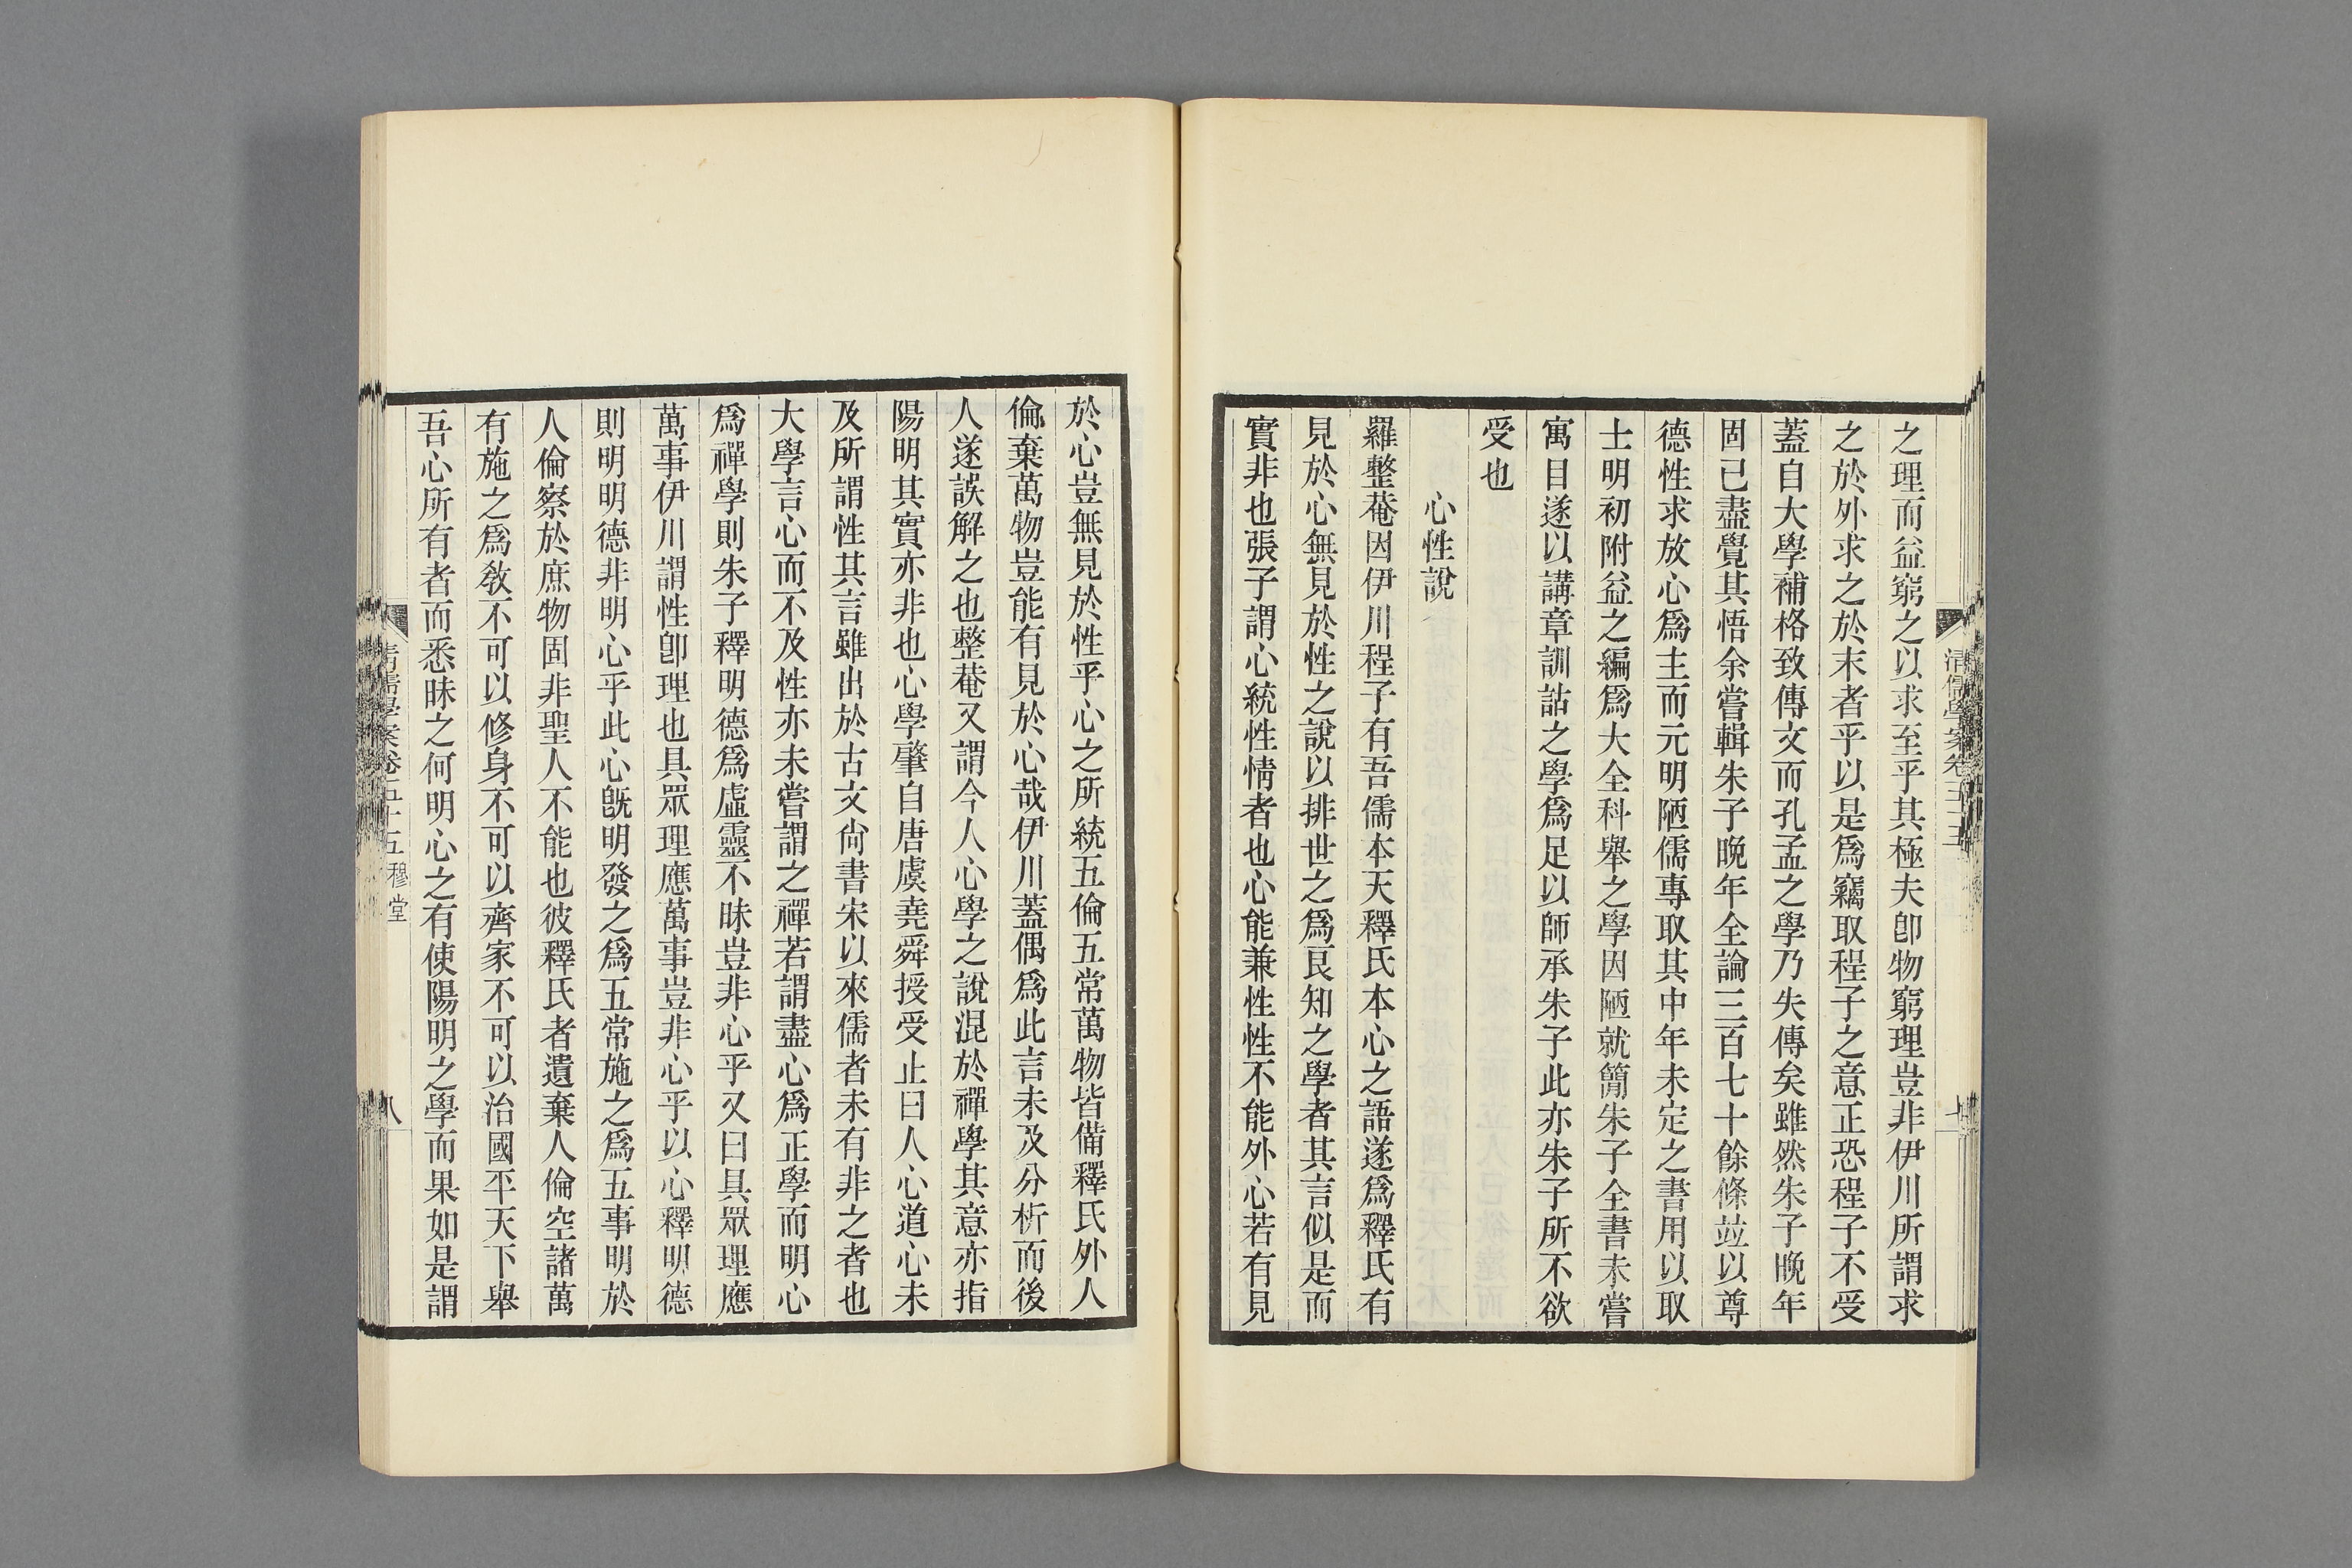 之理而益窮之以求至乎其極夫卽物窮理豈非伊川所謂求
之於外求之於末者乎以是爲竊取程子之意正恐程子不受
蓋自大學補格致傳文而孔孟之學乃失傳矣雖然朱子晚年
固已盡覺其悟余嘗輯朱子晚年全論三百七十餘條竝以尊
德性求放心爲主而元明陋儒專取其中年未定之書用以取
士明初附益之編爲大全科舉之學因陋就簡朱子全書未嘗
寓目遂以講章訓詁之學爲足以師承朱子此亦朱子所不欲
受也
心性說
羅整菴因伊川程子有吾儒本天釋氏本心之語遂爲釋氏有
見於心無見於性之說以排世之爲良知之學者其言似是而
實非也張子謂心統性情者也心能兼性性不能外心若有見
於心豈無見於性乎心之所統五倫五常萬物皆備釋氏外人
倫棄萬物豈能有見於心哉伊川蓋偶爲此言未及分析而後
人遂誤解之也整菴又謂今人心學之說混於禪學其意亦指
陽明其實亦非也心學肇自唐虞堯舜授受止曰人心道心未
及所謂性其言雖出於古文尙書宋以來儒者未有非之者也
大學言心而不及性亦未嘗謂之禪若謂盡心爲正學而明心
爲禪學則朱子釋明德爲虛靈不昧豈非心乎又曰具眾理應
萬事伊川謂性卽理也具眾理應萬事豈非心乎以心釋明德
則明明德非明心乎此心旣明發之爲五常施之爲五事明於
人倫察於庶物固非聖人不能也彼釋氏者遺棄人倫空諸萬
有施之爲敎不可以修身不可以齊家不可以治國平天下舉
吾心所有者而悉昧之何明心之有使陽明之學而果如是謂
清儒學案卷五十五 穆堂
八